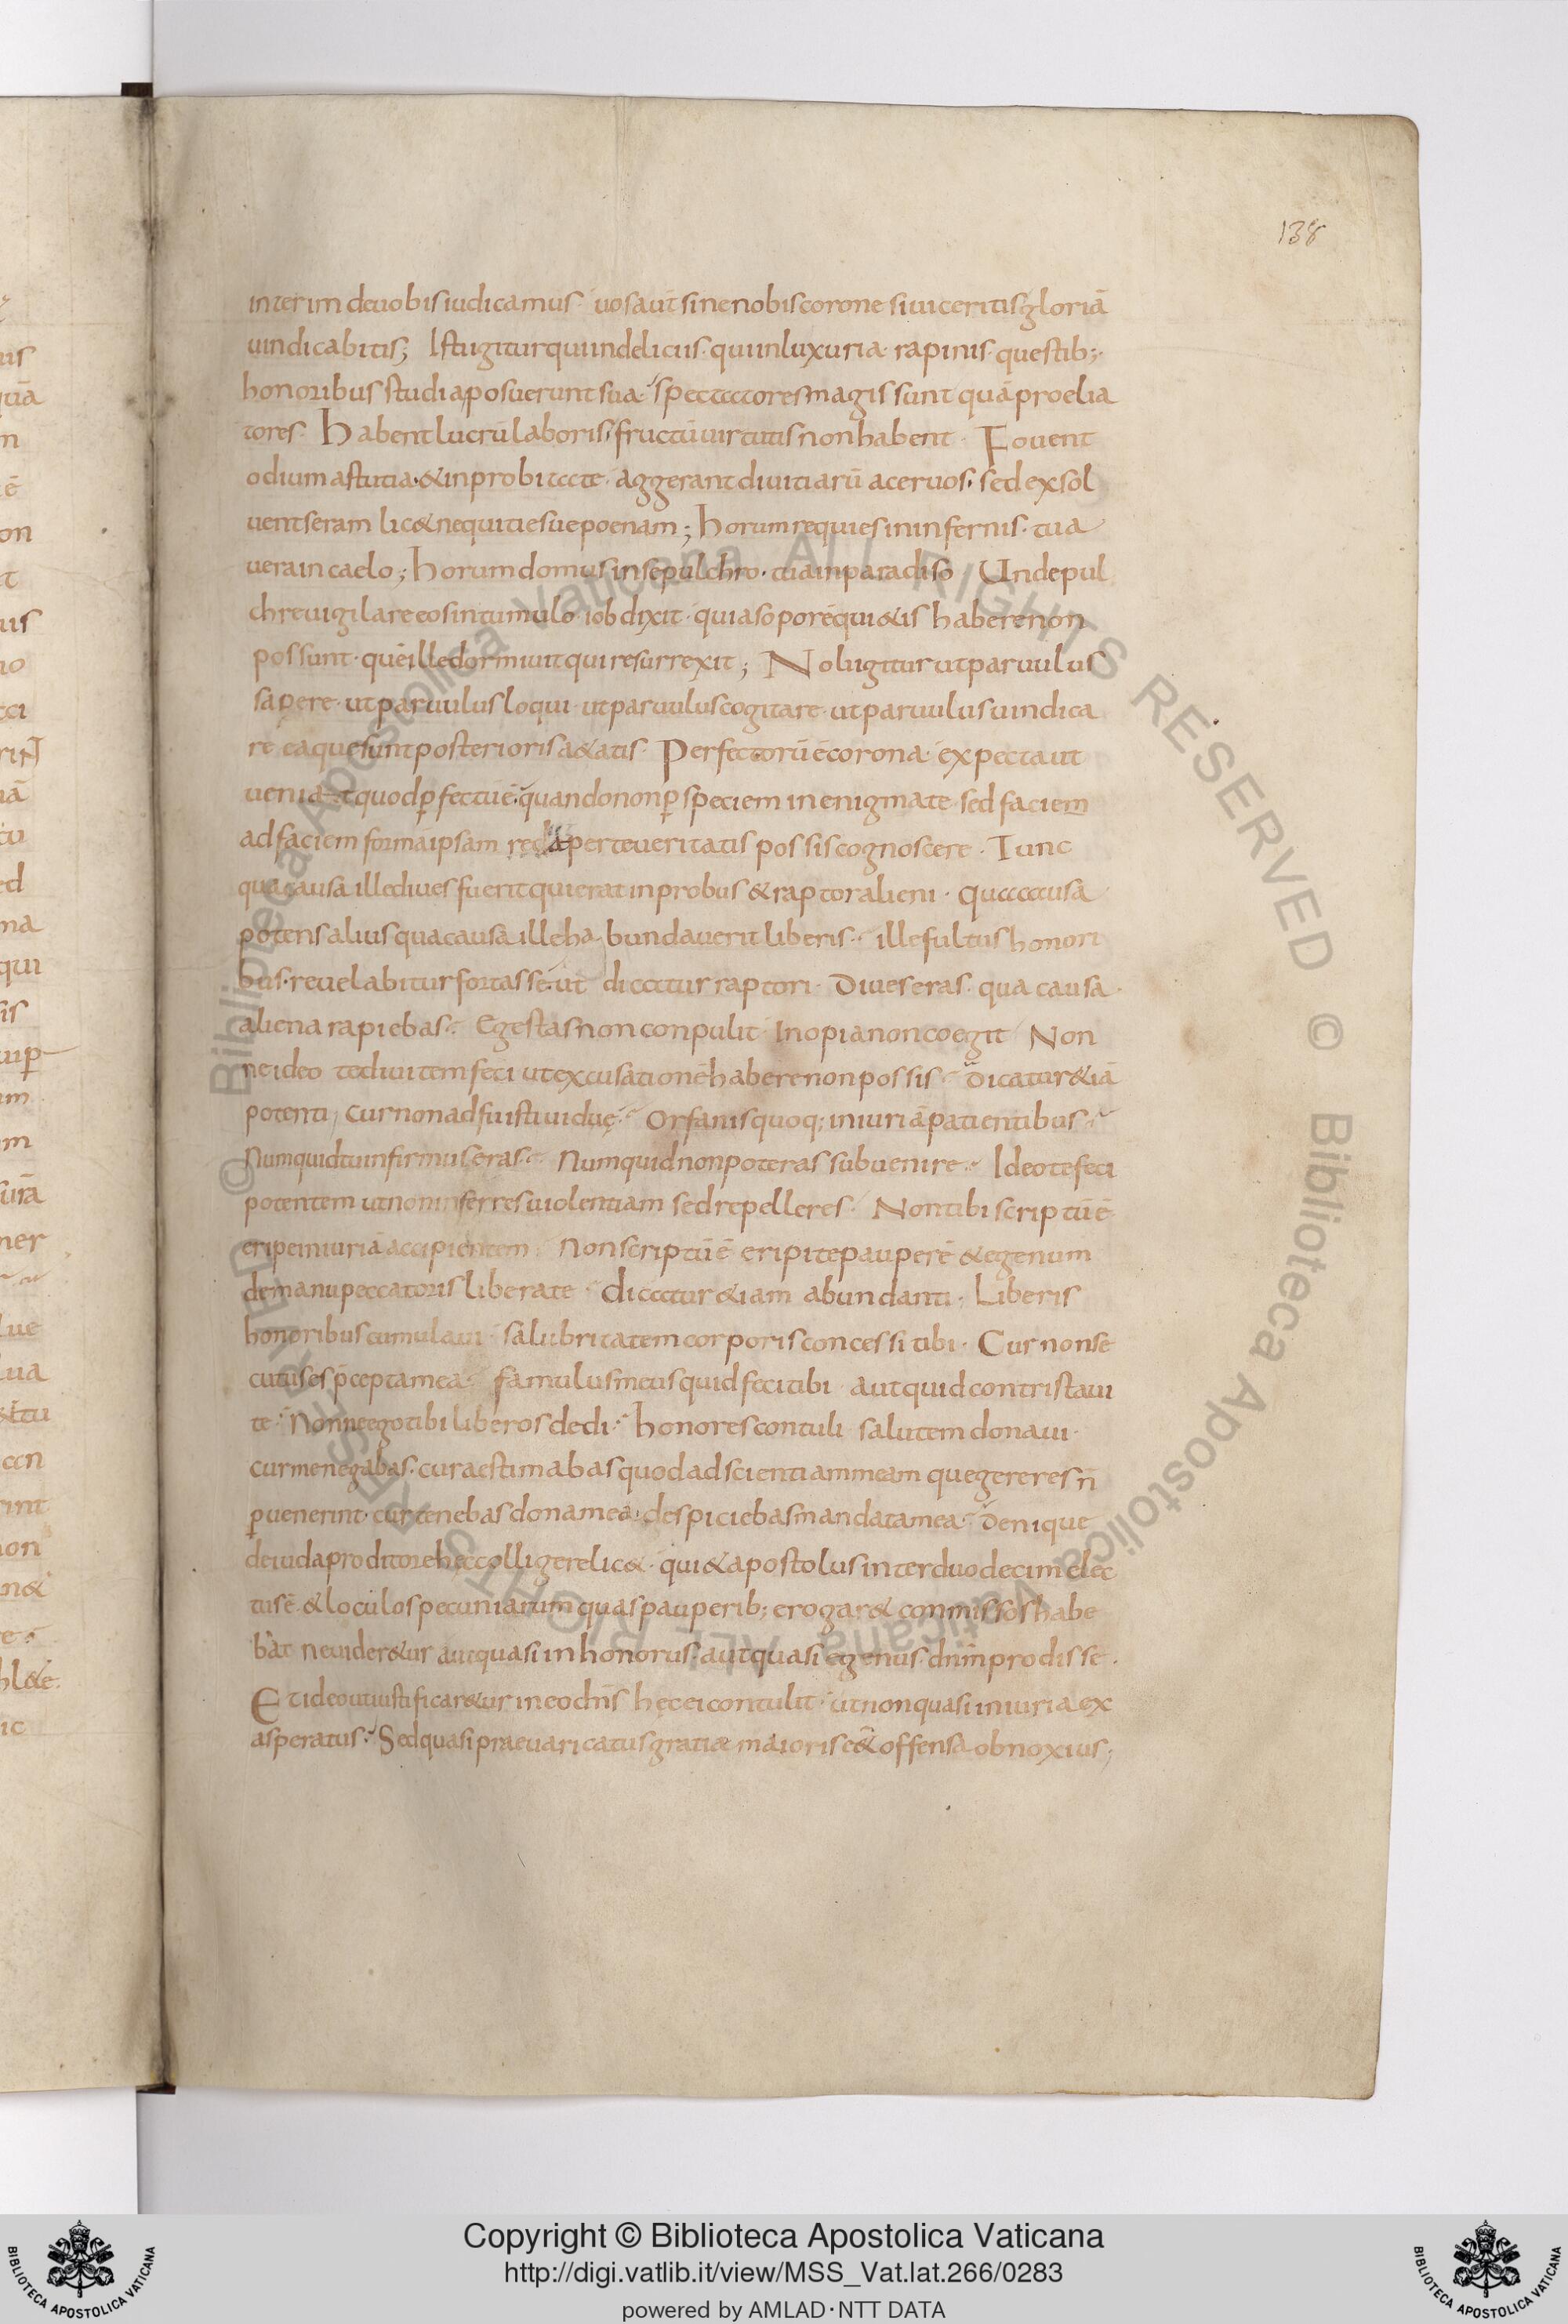 138
interim deuobisiudicamus · uosaut̄ sinenobiscorone siuiceritisgloriā
uindicabitis; Istiigiturquiindeliciis· quiinluxuria· rapinis· questib;·
honoribus studiaposuerunt sua· spectatoresmagis sunt quāproelia
tores· Habent lucrū laboris· fructū uirtutis nonhabent · Fouent
odium astutia·&inprobitate· aggerant diuitiarū aceruos· sed exsol
uentseram lic& nequitiesuepoenam; horumrequies ininfernis· tua
uerain caelo; horumdomus insepulchro· tuainparadiso Undepul
chreuigilareeosintumulo iobdixit· quiasoporē qui&is haberenon
possunt· quē illedormiuit quiresurrexit; Noliigiturutparuulus
sapere· utparuulusloqui· utparuuluscogitare· utparuulusuindica
re eaquesuntposterioris a&atis· Perfectorū ē corona· expectaut
ueniat quodꝑfectū ē· quandononꝑ speciem in enigmate· sed faciem
adfaciem formāipsam redaperteueritatis possiscognoscere· Tunc
quacausa illediuesfueritquieratinprobus & raptoralieni· quacausa
potensaliusquacausa illeha bundauerit liberis· illefultus honori
bus· reuelabiturfortasse· ut dicatur raptori· Diueseras· qua causa·
aliena rapiebas· Egestasnonconpulit· Inopianoncoegit Non
neideo tediuitemfeci utexcusationē haberenonpossis· Dicatur&iā
potenti curnonadfuistiuiduę· Orfanisquoq; iniuriāpatientibus·
Numquidtuinfirmuseras· Numquidnonpoteras subuenire· Ideotefeci
potentem utnoninferresuiolentiam sedrepelleres· Nontibi scriptū ē
eripeiniuriā accipientem· Nonscriptū ē eripitepauperē &egenum
demanupeccatoris liberate· dicatur&iam abundanti· Liberis
honoribuscumulaui· salubritatemcorporisconcessi tibi· Cur nonse
cutuses p̄ceptamea· famulusmeusquidfecitibi· autquidcontristaui
te· Nonneegotibi liberosdedi· honorescontuli salutemdonaui·
curmenegabas· curaestimabasquodadscientiammeam quegereres n̄
ꝑuenerint· curtenebasdonamea· despiciebasmandatamea· Denique
deiudaproditorehęccolligerelic&· qui&apostolusinterduodecimelec
tusē· &loculospecuniarumquaspauperib; erogar& commissoshabe
bat neuider&ur autquasi inhonorus· autquasi egenus· dn̄m prodisse·
Et ideoutiustificar&ur ineodn̄s heceicontulit· utnonquasiiniuriaex
asperatus· Sedquasipraeuaricatusgratiæ maioriseēt offensa obnoxius;
© Biblioteca Apostolica Vaticana ALL RIGHTS RESERVED © Biblioteca Apostolica Vaticana
Copyright © Biblioteca Apostolica Vaticana
http://digi.vatlib.it/view/MSS_Vat.lat.266/0283
powered by AMLAD·NTT DATA
BIBLIOTECA APOSTOLICA VATICANA
BIBLIOTECA APOSTOLICA VATICANA